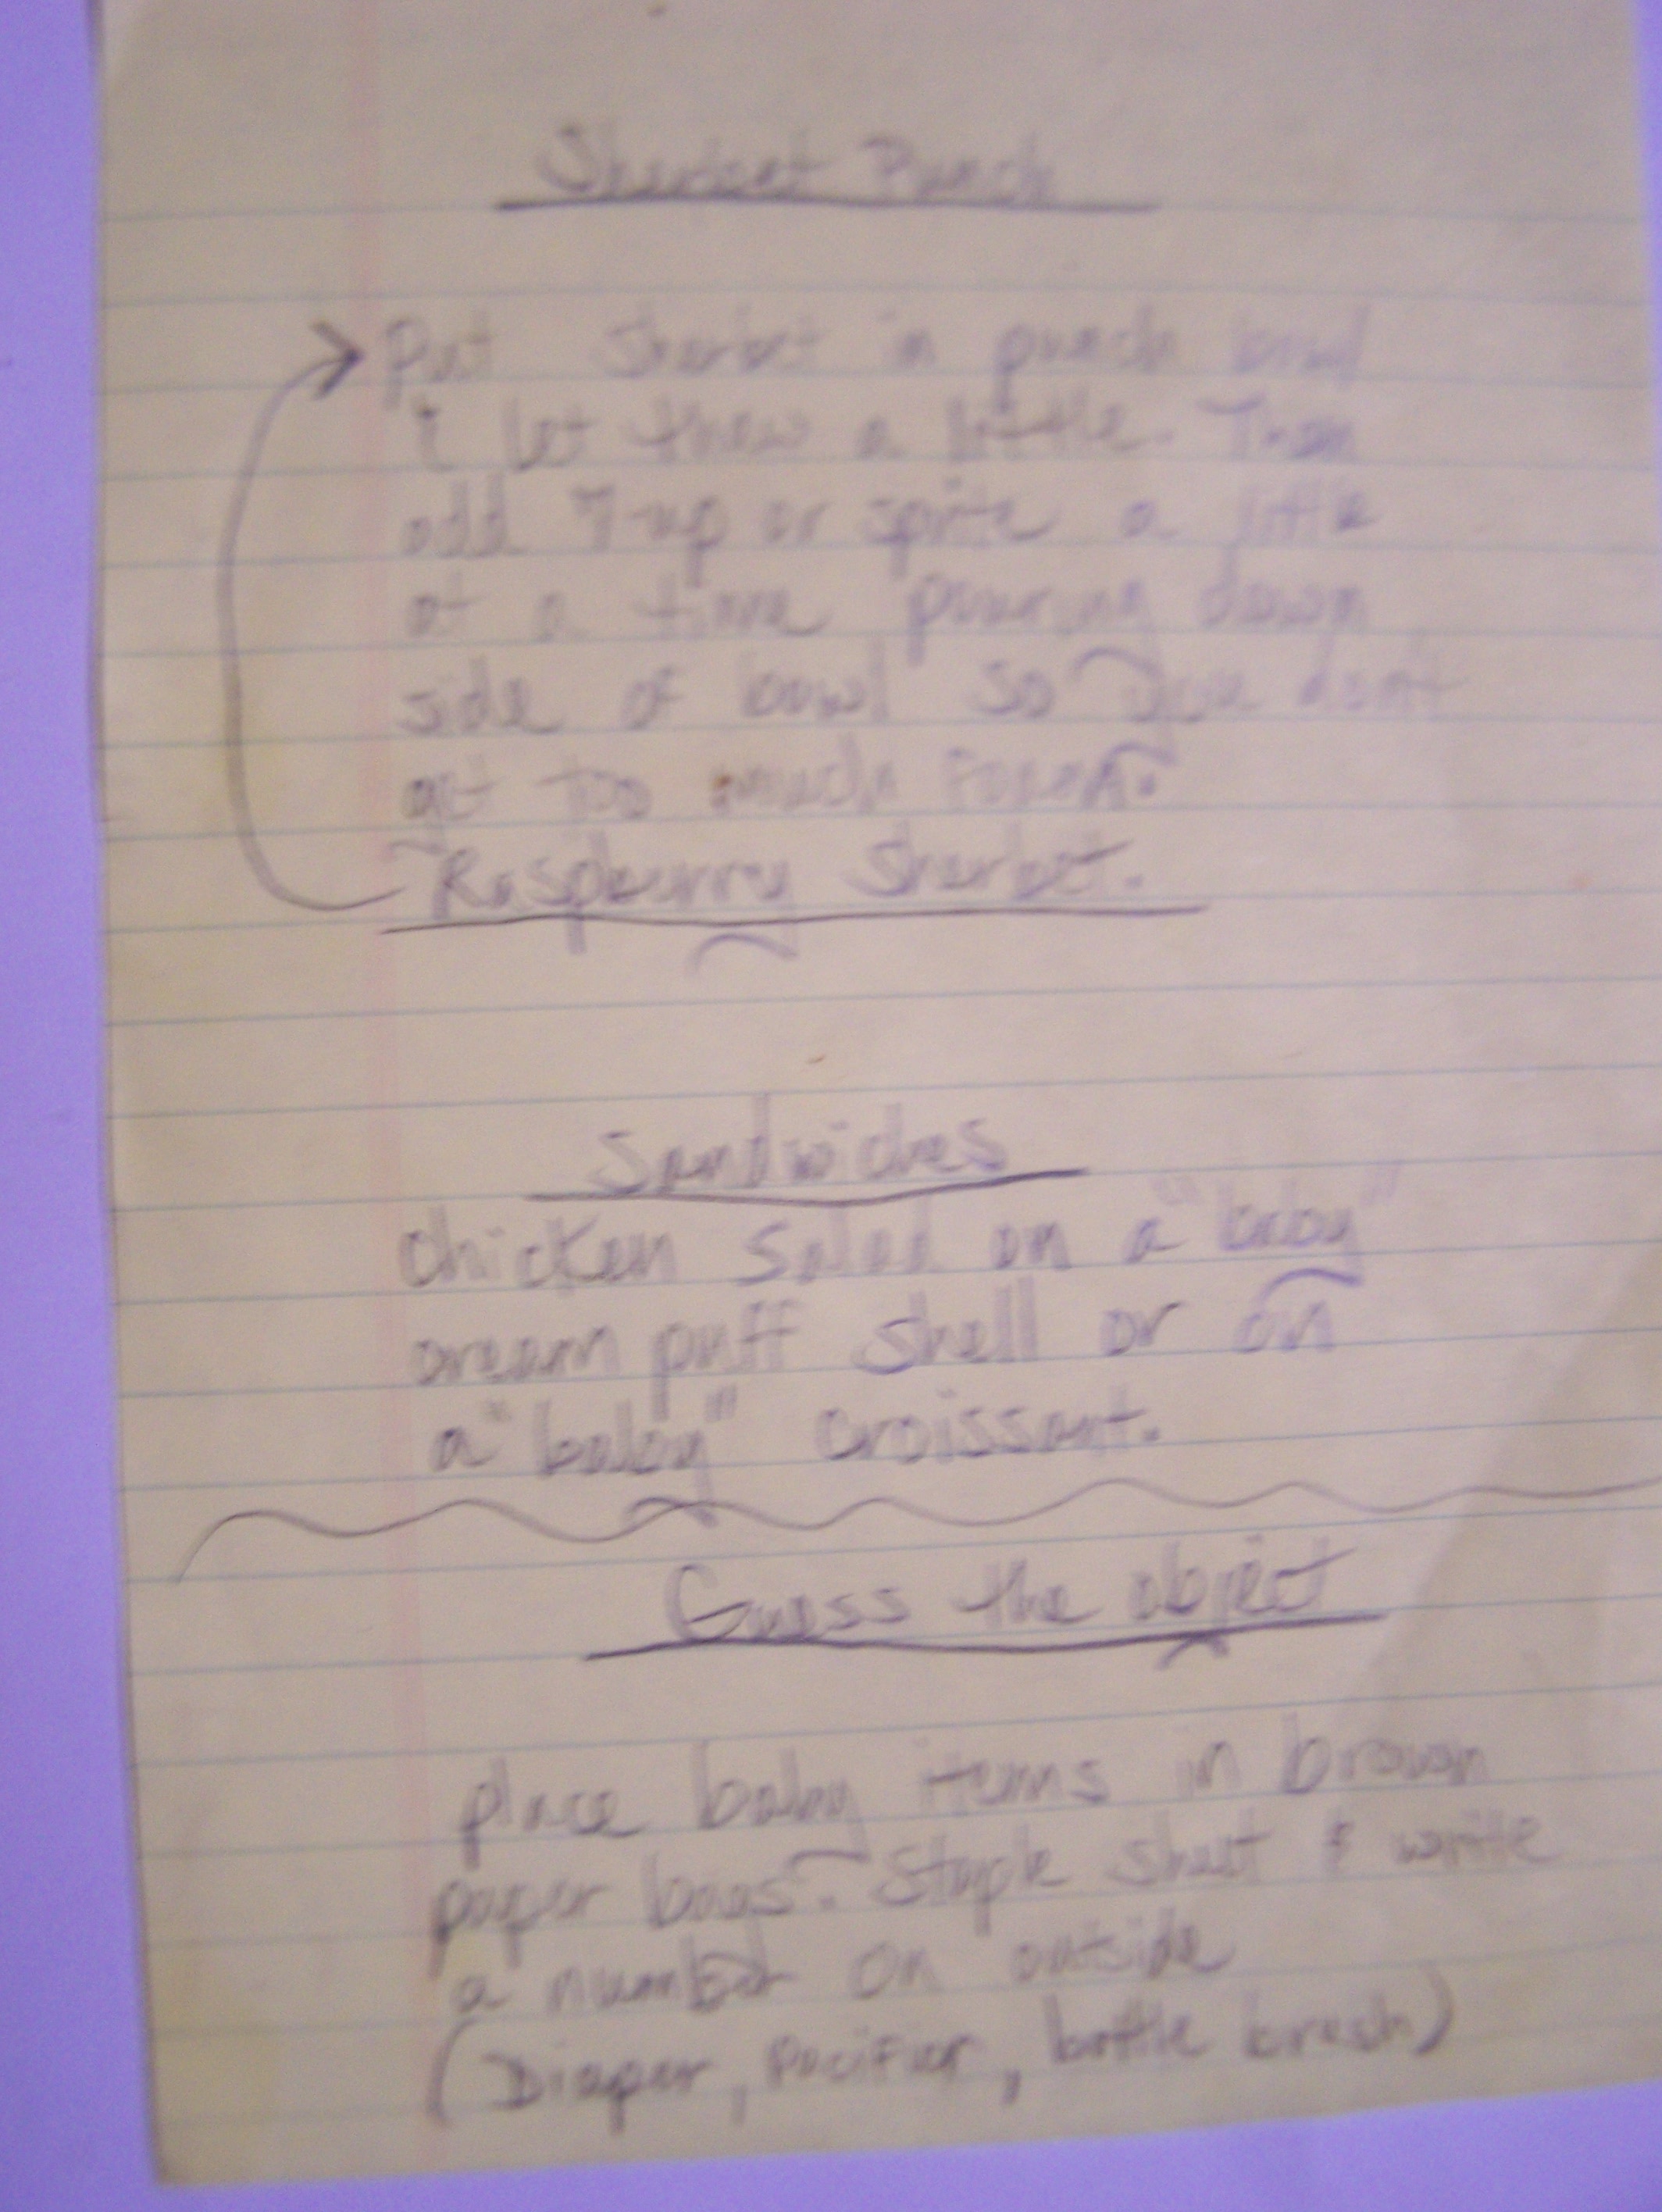 Sherbert Punch
Put Sherbet in punch bowl
& let thaw a little. Then
add 7-up or sprite a little
at a time pouring down
side of bowl so you don't
get too much foam.
Raspburry Sherbet.
Sandwiches
chicken salad on a "baby"
cream puff shell or on
a "baby" croissant.
Guess the object
place baby items in brown
paper bags. Staple shut & write
a number on outside
(Diaper, Pacifier, bottle brush)